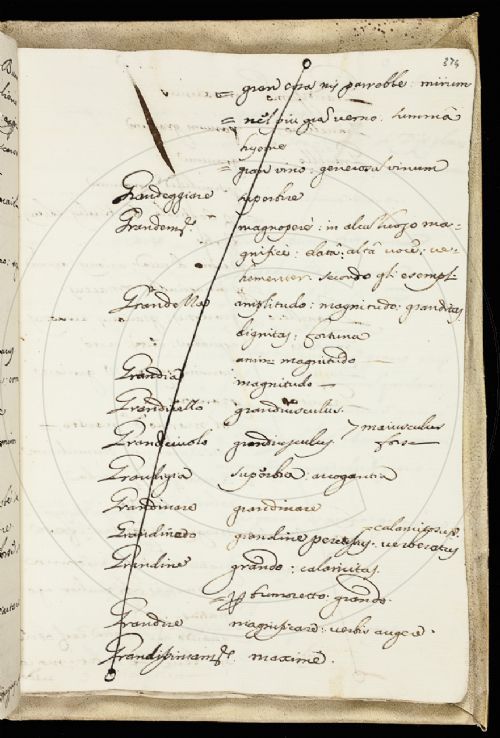 374
= gran cosa mi parrebbe : mirum
= nel più gran verno : summa
hyeme
= gran vino : generosum vinum
Grandeggiare superbire
Grandemte. magnopere : in alcun luogo ma-
gnifice : elata : alta voce : ve-
hementer : secondo gli esempi
Grandezza amplitudo : magnitudo : granditas
dignitas : fortuna
animi magnitudo
Grandia magnitudo
Grandicello grandiusculus
Grandiciuolo grandiusculus maiusculus
forse
Grandigia superbia : arrogantia
Grandinare grandinare
Grandinato grandine percussus : verberatus
= calamitosus
Grandine grando : calamitas
= fumoretto : grando
Grandire magnificare : verbis augere
Grandissimamte. maxime